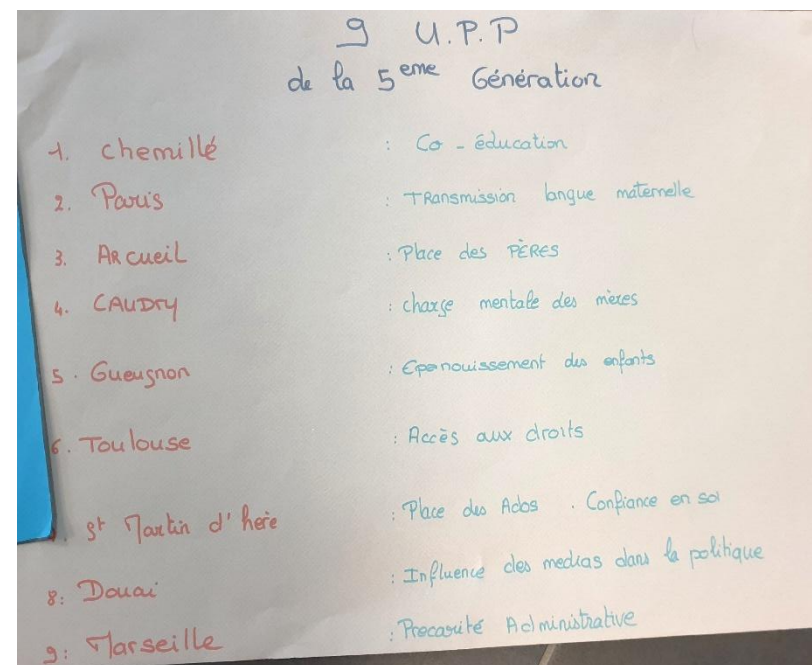 9 U.P.P
de la 5eme Génération
1. chemillé : Co-éducation
2. Paris : TRansmission langue maternelle
3. ARcueiL : Place des PÈRES
4. CAUDry : charge mentale des mères
5. Gueugnon : Epanouissement des enfants
6. Toulouse : Accès aux droits
St Martin d'here : Place des Ados . Confiance en soi
8: Douai : Influence des medias dans la politique
9: Marseille : Precarité Administrative